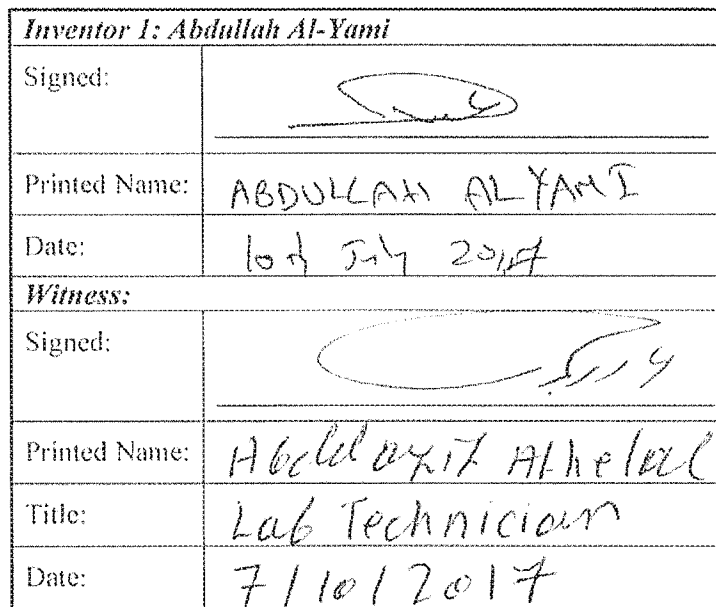 Inventor 1: Abdullah Al-Yami
Signed:
Printed Name: ABDULLAH AL YAMI
Date: 10th July 2017
Witness:
Signed:
Printed Name:
Title: Lab Technician
Date: 7/10/2017